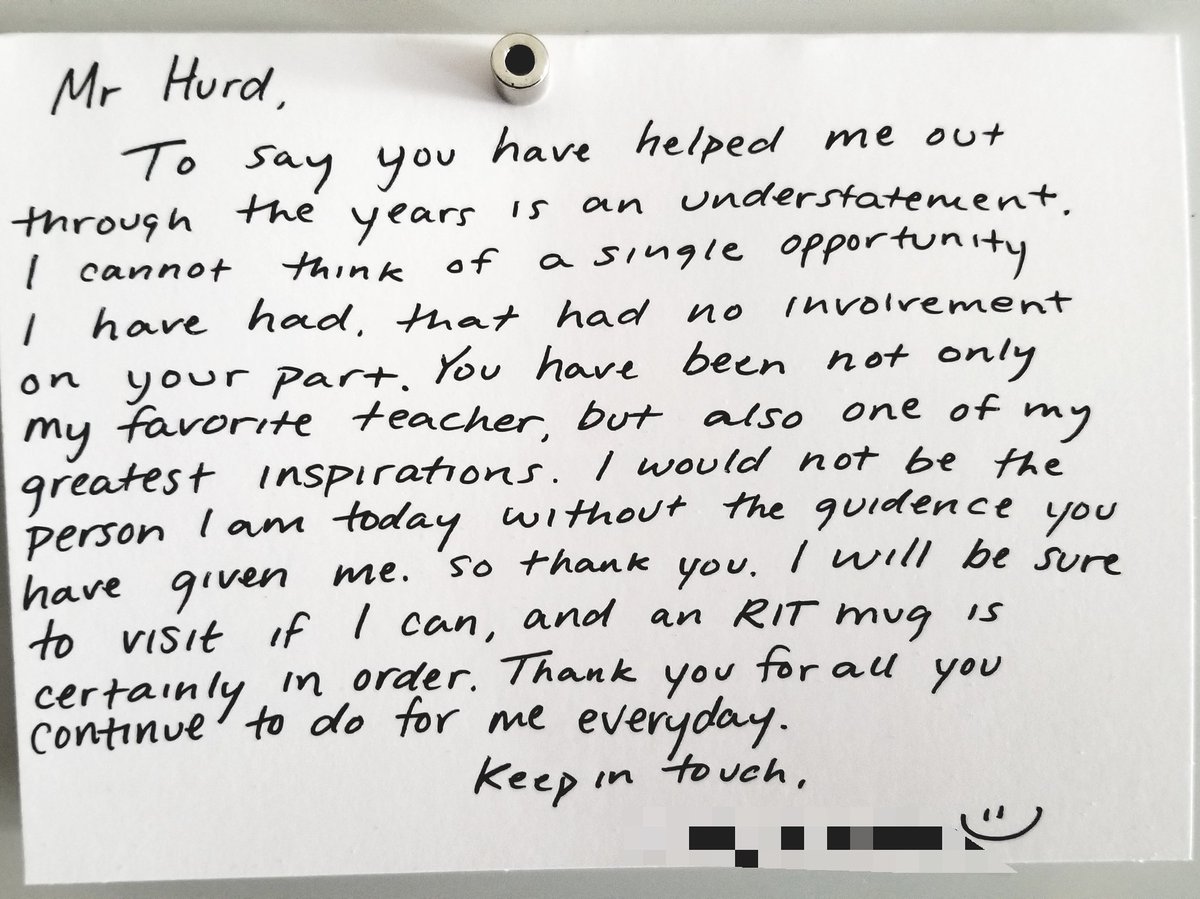 Mr Hurd,
To say you have helped me out
through the years is an understatement.
I cannot think of a single opportunity
I have had, that had no involvement
on your part. You have been not only
my favorite teacher, but also one of my
greatest inspirations. I would not be the
person I am today without the guidence you
have given me. So thank you. I will be sure
to visit if I can, and an RIT mug is
certainly in order. Thank you for all you
continue to do for me everyday.
Keep in touch.